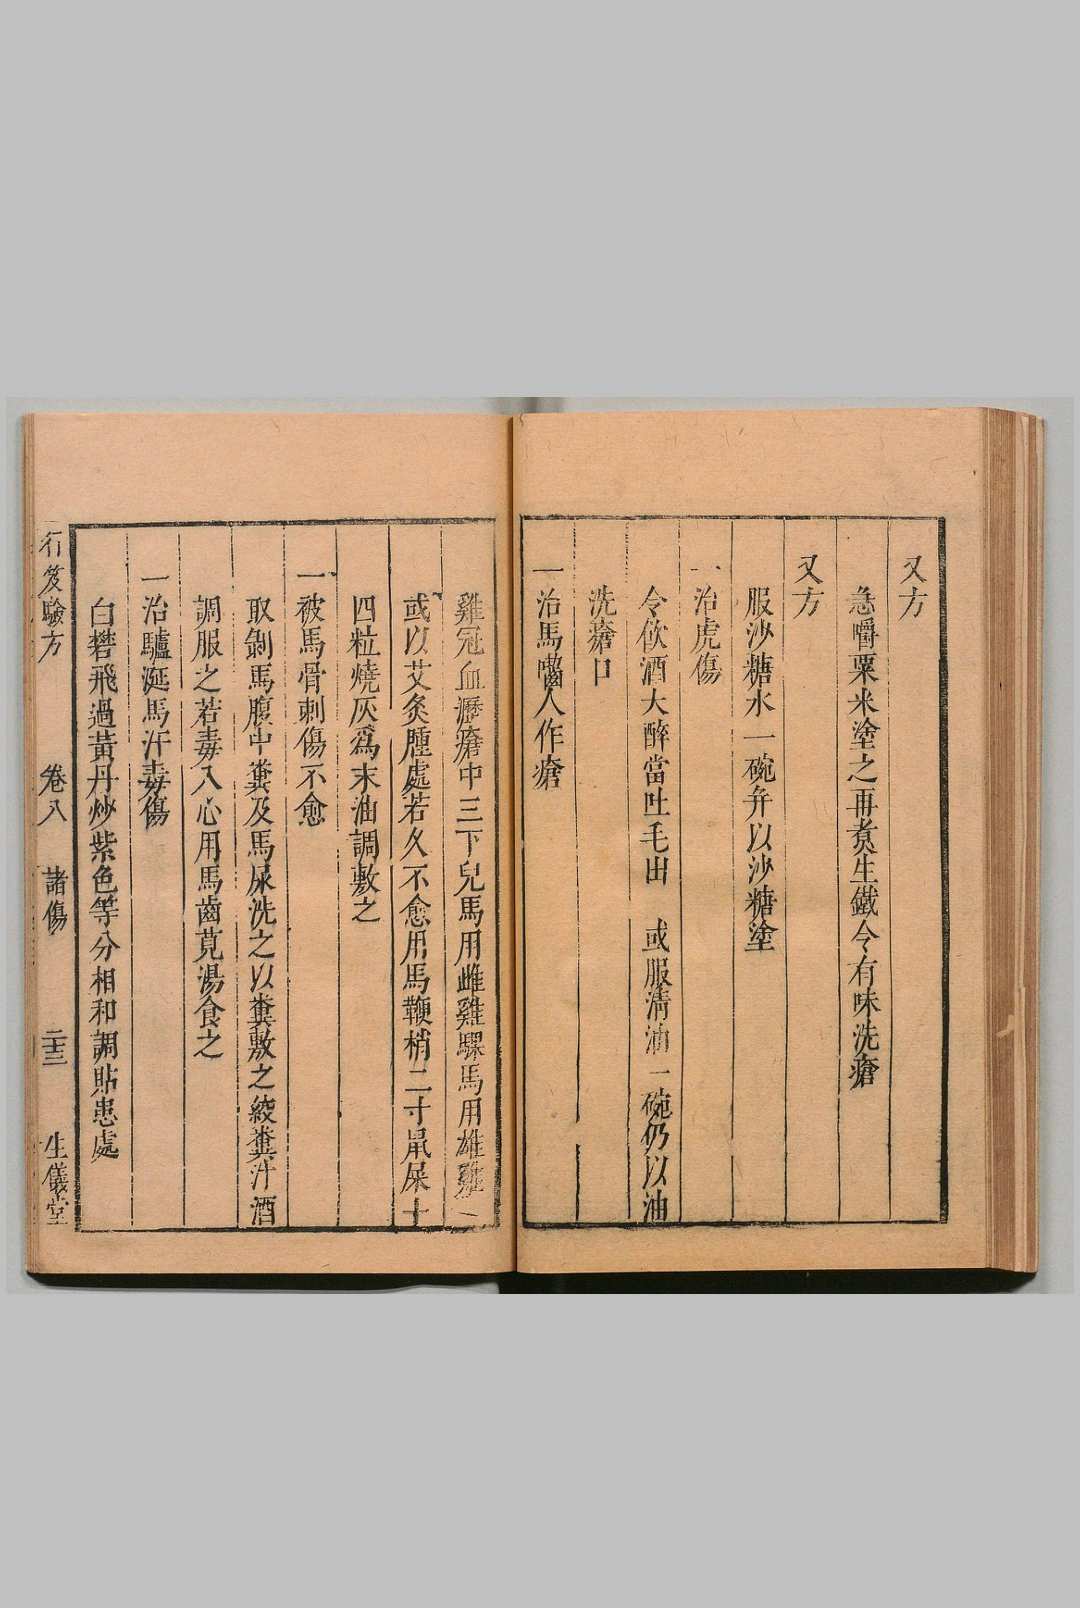 又方
急嚼粟米塗之再煑生鐵令有味洗瘡
又方
服沙糖水一碗并以沙糖塗
一治虎傷
令飲酒大醉當吐毛出　或服清油一碗仍以油
洗瘡口
一治馬嚙人作瘡
雞冠血瀝瘡中三下兒馬用雌雞騍馬用雄雞一
或以艾灸腫處若久不愈用馬鞭梢二寸鼠屎十
四粒燒灰爲末油調敷之
一被馬骨刺傷不愈
取剝馬腹中糞及馬尿洗之以糞敷之絞糞汁酒
調服之若毒入心用馬齒莧湯食之
一治驢涎馬汗毒傷
白礬飛過黃丹炒紫色等分相和調貼患處
行笈驗方　卷八　諸傷　二十三　生儀堂